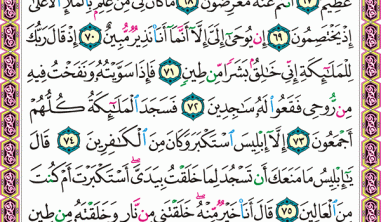 عَظِيمٌ ٦٧ أَنتُمْ عَنْهُ مُعْرِضُونَ ٦٨ مَا كَانَ لِىَ مِنْ عِلْمٍۭ بِٱلْمَلَإِ ٱلْأَعْلَىٰٓ
إِذْ يَخْتَصِمُونَ ٦٩ إِن يُوحَىٰٓ إِلَىَّ إِلَّآ أَنَّمَآ أَنَا۠ نَذِيرٌ مُّبِينٌ ٧٠ إِذْ قَالَ رَبُّكَ
لِلْمَلَـٰٓئِكَةِ إِنِّى خَـٰلِقٌۢ بَشَرًا مِّن طِينٍ ٧١ فَإِذَا سَوَّيْتُهُۥ وَنَفَخْتُ فِيهِ
مِن رُّوحِى فَقَعُوا۟ لَهُۥ سَـٰجِدِينَ ٧٢ فَسَجَدَ ٱلْمَلَـٰٓئِكَةُ كُلُّهُمْ
أَجْمَعُونَ ٧٣ إِلَّآ إِبْلِيسَ ٱسْتَكْبَرَ وَكَانَ مِنَ ٱلْكَـٰفِرِينَ ٧٤ قَالَ
يَـٰٓإِبْلِيسُ مَا مَنَعَكَ أَن تَسْجُدَ لِمَا خَلَقْتُ بِيَدَىَّ ۖ أَسْتَكْبَرْتَ أَمْ كُنتَ
مِنَ ٱلْعَالِينَ ٧٥ قَالَ أَنَا۠ خَيْرٌ مِّنْهُ ۖ خَلَقْتَنِى مِن نَّارٍ وَخَلَقْتَهُۥ مِن طِينٍ